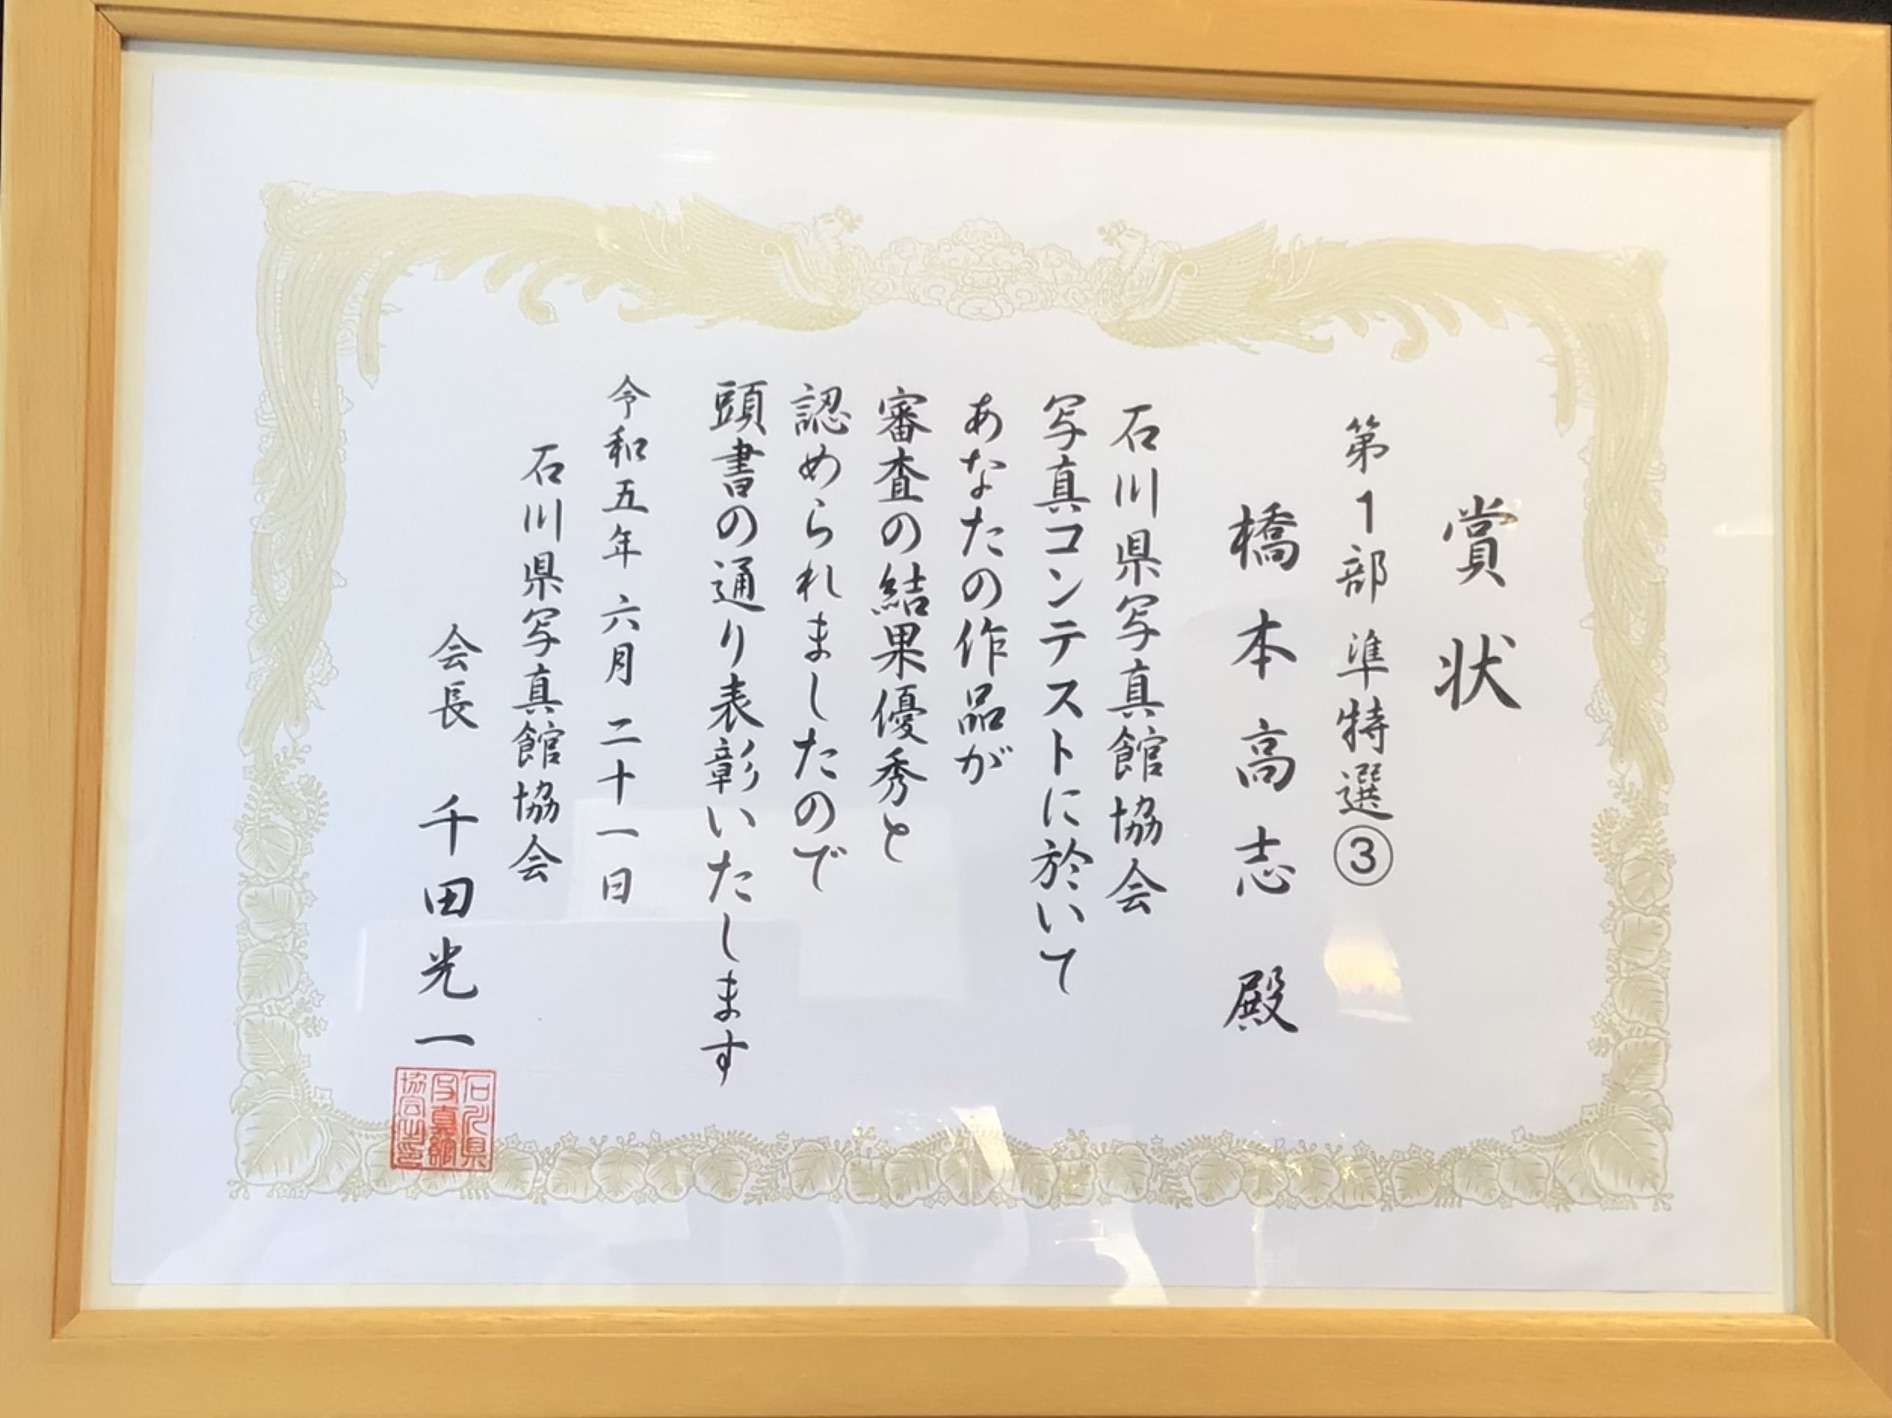 賞状
第1部 準特選③
橋本高志 殿
石川県写真館協会
写真コンテストに於いて
あなたの作品が
審査の結果優秀と
認められましたので
頭書の通り表彰いたします
令和五年 六月 二十一日
石川県写真館協会
会長 千田光一
石川県
写真館
協会之印